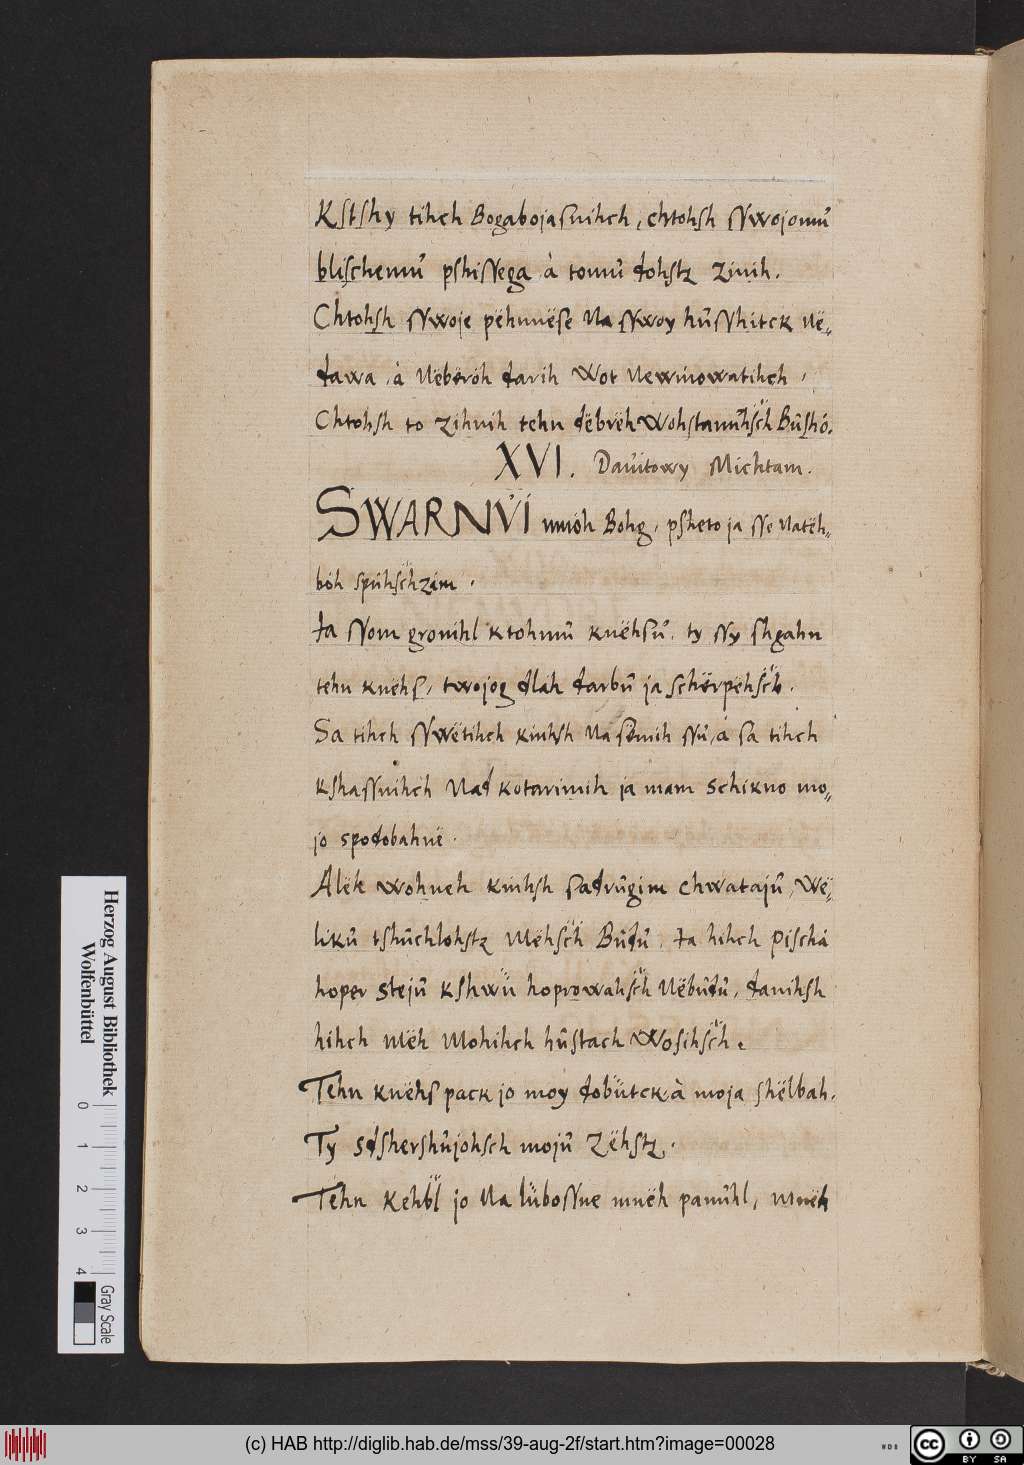 Kſtſhy tihch Bogabojaſnihch, chtohſh ſſwojomů
bliſchemů pſhiſſega à tomů dohſtz Zinih.
Chtohſh ſſwoje pëhnnëſe Na ſſwoy hůſſhitck Në„
dawa, à Nëbëröh darih Wot Newinowatihch,
Chtohſh to Zihnih tehn dëbrëh Wohſtanůhſch Bůſhó.
XVI. Dauitowy Michtam.
SWARNVI mnöh Bohg, pſheto ja ſſe Natëh„
böh ſpůhſchzim.
Ja ſſom gronihl ktohmů knëhſů, ty ſſy ſhgahn
tehn knëhſ, twojog dlah darbů ja ſchërpëhſch.
Sa tihch ſſwëtihch kinhſh Na ſëmih ſſů, à ſa tihch
kſhaſſnihch Nad kotarimih ja mam Schikno mo„
jo spodobahnë.
Alëh wohneh kinhſh ſadrůgim chwatajů, Wë„
liků tſhůchlohſtz Mëhſch Bůdů, Ja hihch piſchá
hoper Stejů kſhwü hoprowahſch Nëbůdů, danihſh
hihch Mëh Mohihch hůſtach Woſihſch.
Tehn knëhſ pack jo moy dobütck, à moja ſhëlbah.
Ty Sdſherſhůjohſch mojů Zëhſtz.
Tehn Kehbl jo Na lüboſſne mnëh panůhl, mnëh
Herzog August Bibliothek
Wolfenbüttel
0 1 2 3 4
Gray Scale
(c) HAB http://diglib.hab.de/mss/39-aug-2f/start.htm?image=00028
WDB
cc BY SA